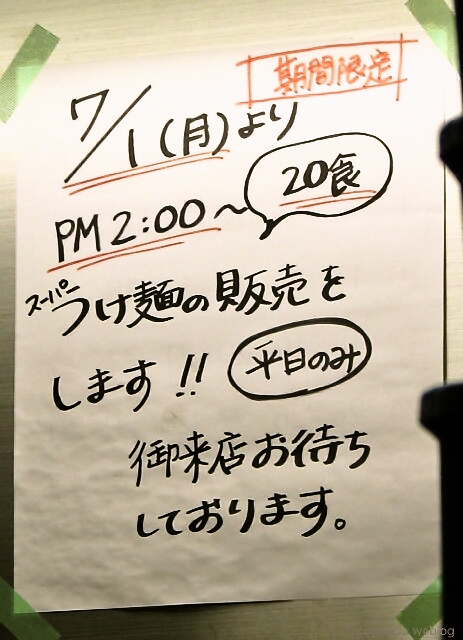 期間限定
7/1(月)より
PM2:00～ 20食
スーパーつけ麺の販売を
します!! 平日のみ
御来店お待ち
しております。